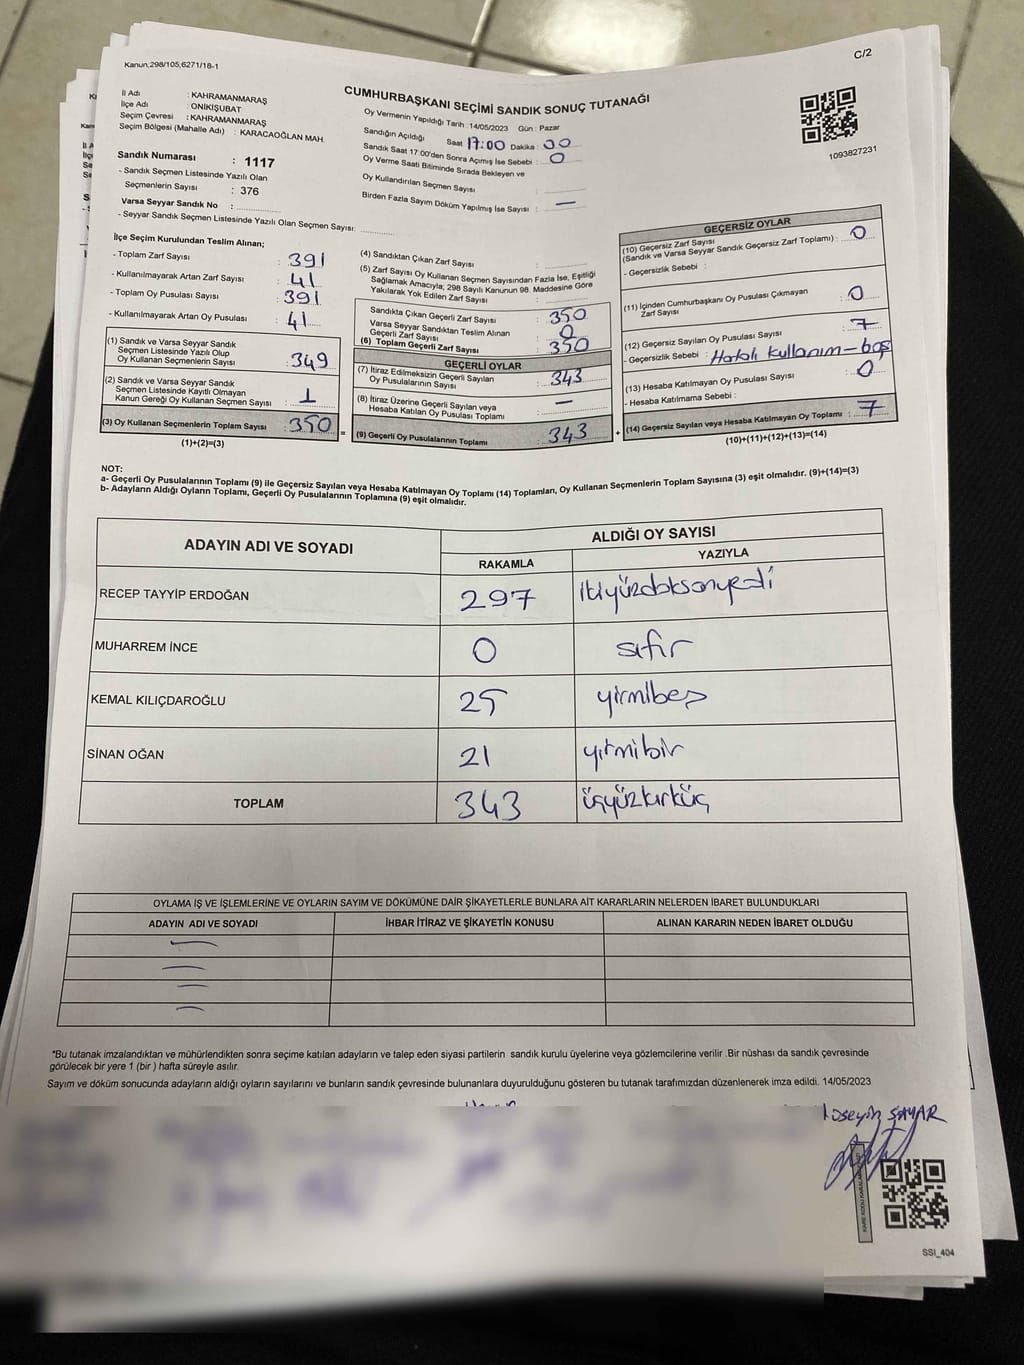 Kanun;298/105;6271/18-1
C/2
CUMHURBAŞKANI SEÇİMİ SANDIK SONUÇ TUTANAĞI
İl Adı : KAHRAMANMARAŞ
İlçe Adı : ONİKİŞUBAT
Seçim Çevresi : KAHRAMANMARAŞ
Seçim Bölgesi (Mahalle Adı) : KARACAOĞLAN MAH.
Sandık Numarası : 1117
- Sandık Seçmen Listesinde Yazılı Olan
Seçmenlerin Sayısı : 376
Varsa Seyyar Sandık No :
- Seyyar Sandık Seçmen Listesinde Yazılı Olan Seçmen Sayısı:
Oy Vermenin Yapıldığı Tarih :14/05/2023 Gün : Pazar
Sandığın Açıldığı Saat 17:00 Dakika : 00
Sandık Saat 17:00'den Sonra Açımış İse Sebebi : 0
Oy Verme Saati Bitiminde Sırada Bekleyen ve
Oy Kullandırılan Seçmen Sayısı :
Birden Fazla Sayım Döküm Yapılmış İse Sayısı : —
1093827231
İlçe Seçim Kurulundan Teslim Alınan;
- Toplam Zarf Sayısı : 391
- Kullanılmayarak Artan Zarf Sayısı : 41
- Toplam Oy Pusulası Sayısı : 391
- Kullanılmayarak Artan Oy Pusulası : 41
(1) Sandık ve Varsa Seyyar Sandık
Seçmen Listesinde Yazılı Olup
Oy Kullanan Seçmenlerin Sayısı : 349
(2) Sandık ve Varsa Seyyar Sandık
Seçmen Listesinde Kayıtlı Olmayan
Kanun Gereği Oy Kullanan Seçmen Sayısı : 1
(3) Oy Kullanan Seçmenlerin Toplam Sayısı : 350
(1)+(2)=(3)
(4) Sandıktan Çıkan Zarf Sayısı :
(5) Zarf Sayısı Oy Kullanan Seçmen Sayısından Fazla İse, Eşitliği
Sağlamak Amacıyla; 298 Sayılı Kanunun 98. Maddesine Göre
Yakılarak Yok Edilen Zarf Sayısı :
Sandıkta Çıkan Geçerli Zarf Sayısı : 350
Varsa Seyyar Sandıktan Teslim Alınan
Geçerli Zarf Sayısı : 0
(6) Toplam Geçerli Zarf Sayısı : 350
GEÇERLİ OYLAR
(7) İtiraz Edilmeksizin Geçerli Sayılan
Oy Pusulalarının Sayısı : 343
(8) İtiraz Üzerine Geçerli Sayılan veya
Hesaba Katılan Oy Pusulası Toplamı : —
(9) Geçerli Oy Pusulalarının Toplamı : 343
GEÇERSİZ OYLAR
(10) Geçersiz Zarf Sayısı
(Sandık ve Varsa Seyyar Sandık Geçersiz Zarf Toplamı) : 0
- Geçersizlik Sebebi :
(11) İçinden Cumhurbaşkanı Oy Pusulası Çıkmayan
Zarf Sayısı : 0
(12) Geçersiz Sayılan Oy Pusulası Sayısı : 7
- Geçersizlik Sebebi : Hatalı kullanım-boş
(13) Hesaba Katılmayan Oy Pusulası Sayısı : 0
- Hesaba Katılmama Sebebi :
(14) Geçersiz Sayılan veya Hesaba Katılmayan Oy Toplamı : 7
(10)+(11)+(12)+(13)=(14)
NOT:
a- Geçerli Oy Pusulalarının Toplamı (9) ile Geçersiz Sayılan veya Hesaba Katılmayan Oy Toplamı (14) Toplamları, Oy Kullanan Seçmenlerin Toplam Sayısına (3) eşit olmalıdır. (9)+(14)=(3)
b- Adayların Aldığı Oyların Toplamı, Geçerli Oy Pusulalarının Toplamına (9) eşit olmalıdır.
ADAYIN ADI VE SOYADI
ALDIĞI OY SAYISI
RAKAMLA YAZIYLA
RECEP TAYYİP ERDOĞAN 297 ikiyüzdoksanyedi
MUHARREM İNCE 0 sıfır
KEMAL KILIÇDAROĞLU 25 yirmibeş
SİNAN OĞAN 21 yirmibir
TOPLAM 343 üçyüzkırküç
OYLAMA İŞ VE İŞLEMLERİNE VE OYLARIN SAYIM VE DÖKÜMÜNE DAİR ŞİKAYETLERLE BUNLARA AİT KARARLARIN NELERDEN İBARET BULUNDUKLARI
ADAYIN ADI VE SOYADI İHBAR İTİRAZ VE ŞİKAYETİN KONUSU ALINAN KARARIN NEDEN İBARET OLDUĞU
*Bu tutanak imzalandıktan ve mühürlendikten sonra seçime katılan adayların ve talep eden siyasi partilerin sandık kurulu üyelerine veya gözlemcilerine verilir .Bir nüshası da sandık çevresinde
görülecek bir yere 1 (bir ) hafta süreyle asılır.
Sayım ve döküm sonucunda adayların aldığı oyların sayılarını ve bunların sandık çevresinde bulunanlara duyurulduğunu gösteren bu tutanak tarafımızdan düzenlenerek imza edildi. 14/05/2023
ŞAYAR
SSI_404